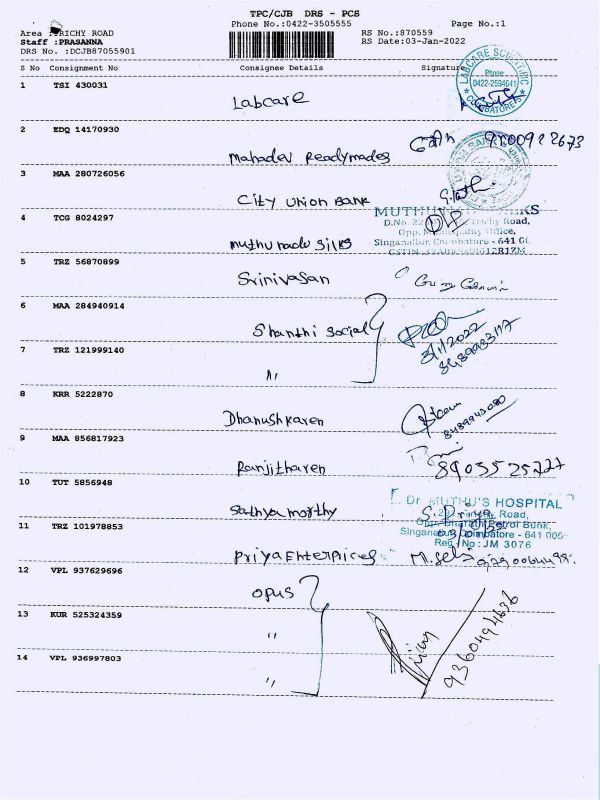 TPC/CJB DRS - PCS
Phone No.:0422-3505555 Page No.:1
Area RICHY ROAD RS No.:870559
Staff :PRASANNA RS Date:03-Jan-2022
DRS No. :DCJB87055901
S No Consignment No Consignee Details Signature
LABCARE SCIENTIFIC
Phone:
0422-2594641
COIMBATORE-5
1 TSI 430031 Labcare
2 EDQ 14170930 Mahadev Readymades
3 MAA 280726056 City union Bank
4 TCG 8024297 muthu silks
Trichy Road,
Singanallur, Coimbatore - 641
5 TRZ 56870899 Srinivasan
6 MAA 284940914 Shanthi Social
3/1/2022
7 TRZ 121999140 "
8 KRR 5222870 Dhanushkaren
9 MAA 856817923 Ranjitharen
10 TUT 5856948 Sathya morthy
Dr MUTHU'S HOSPITAL
Trichy Road,
Opp. Bharath Petrol Bunk,
Singanallur, Coimbatore - 641 005
Reg No: JM 3076
S. Priya
11 TRZ 101978853 Priya Enterprices
12 VPL 937629696 opus
13 KUR 525324359 "
9360494636
14 VPL 936997803 "